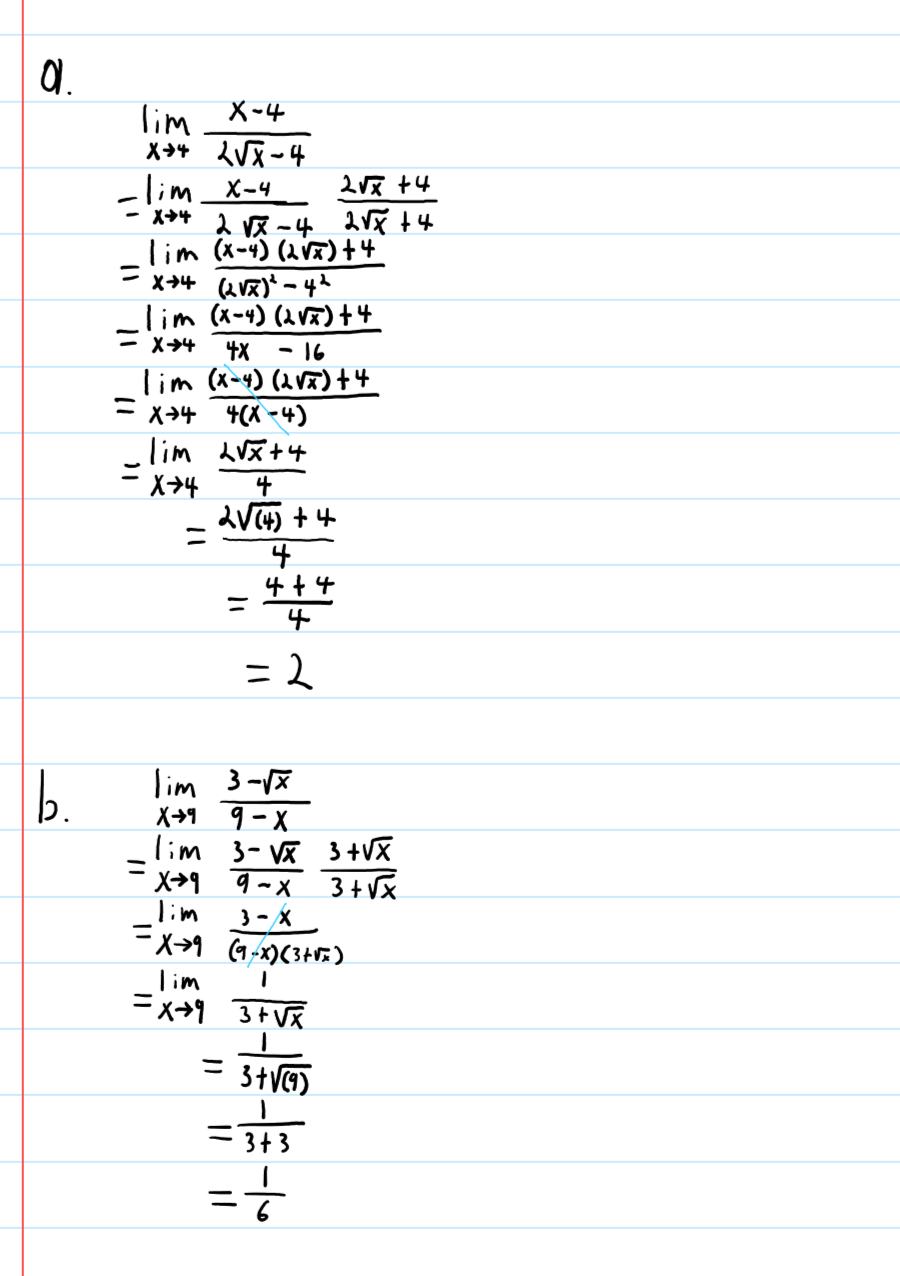 a.
lim x→4 (x-4)/(2√x - 4)
= lim x→4 (x-4)/(2√x - 4) (2√x + 4)/(2√x + 4)
= lim x→4 ((x-4)(2√x)+4)/((2√x)² - 4²)
= lim x→4 ((x-4)(2√x)+4)/(4x - 16)
= lim x→4 ((x-4)(2√x)+4)/(4(x-4))
= lim x→4 (2√x+4)/4
= (2√(4) + 4)/4
= (4+4)/4
= 2
b. lim x→9 (3-√x)/(9-x)
= lim x→9 (3-√x)/(9-x) (3+√x)/(3+√x)
= lim x→9 (3-x)/((9-x)(3+√x))
= lim x→9 1/(3+√x)
= 1/(3+√(9))
= 1/(3+3)
= 1/6